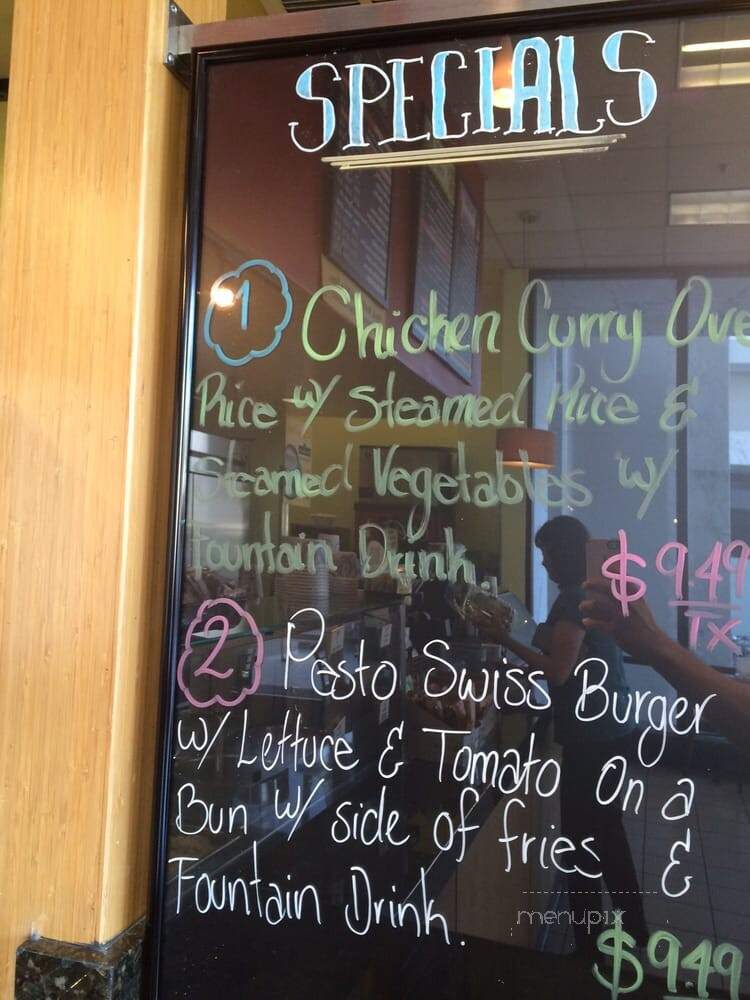 SPECIALS
1 Chicken Curry Ove
Rice w/ Steamed Rice &
Steamed Vegetables w/
Fountain Drink.
$9.49
TX
2 Pesto Swiss Burger
w/ Lettuce & Tomato On a
Bun w/ side of fries &
Fountain Drink.
menupix
$9.49